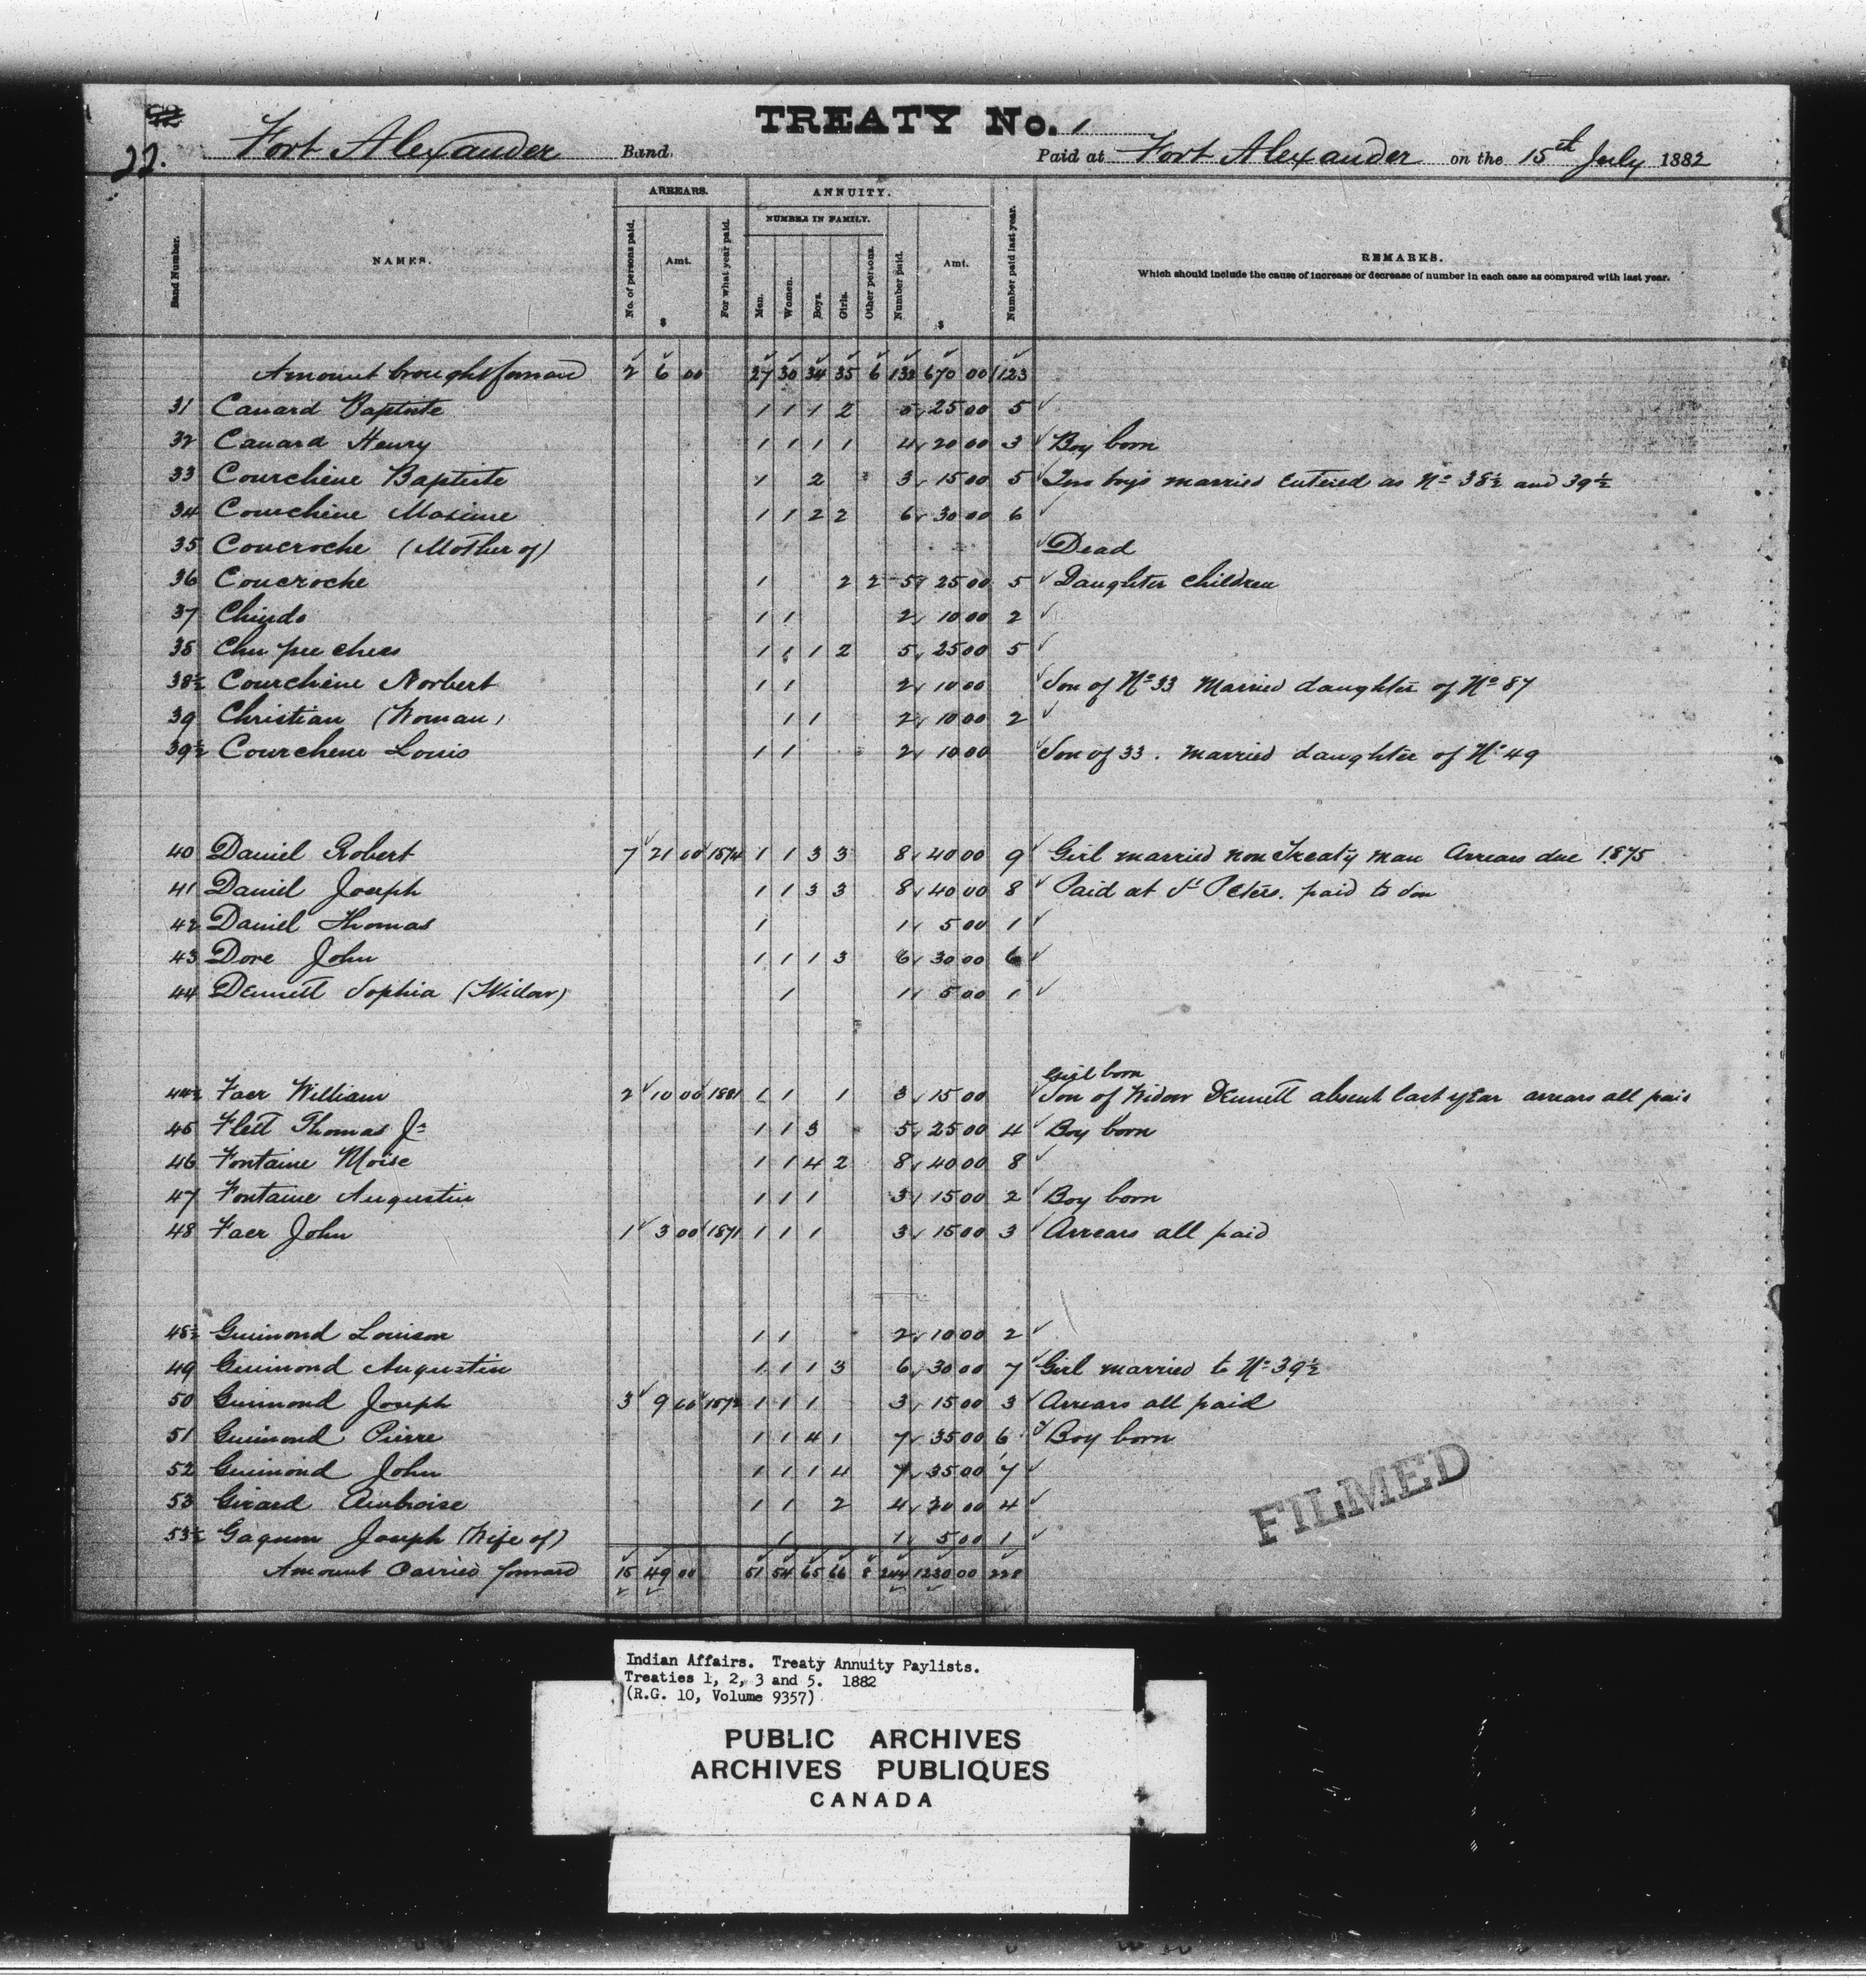 TREATY No. 1
22. Fort Alexander Band. Paid at Fort Alexander on the 15th July 1882
ARREARS. ANNUITY.
NUMBER IN FAMILY.
Band Number. NAMES. No. of persons paid. Amt. $ For what year paid. Men. Women. Boys. Girls. Other persons. Number paid. Amt. $ Number paid last year. REMARKS.
Which should include the cause of increase or decrease of number in each case as compared with last year.
Amount brought forward 2 6 00 27 30 34 35 6 132 670 00 123
31 Canard Baptiste 1 1 1 2 5 25 00 5
32 Canard Henry 1 1 1 1 4 20 00 3 Boy born
33 Courchêne Baptiste 1 2 3 15 00 5 Two boys married entered as No 38½ and 39½
34 Courchêne Maxime 1 1 2 2 6 30 00 6
35 Coucroche (Mother of) Dead
36 Coucroche 1 2 2 5 25 00 5 Daughter children
37 Chindo 1 1 2 10 00 2
38 Chu pee chees 1 1 1 2 5 25 00 5
38½ Courchêne Norbert 1 1 2 10 00 Son of No 33 Married daughter of No 87
39 Christian (Woman) 1 1 2 10 00 2
39½ Courchene Louis 1 1 2 10 00 Son of 33. married daughter of No 49
40 Daniel Robert 7 21 00 1874 1 1 3 3 8 40 00 9 Girl married non Treaty man Arrears due 1875
41 Daniel Joseph 1 1 3 3 8 40 00 8 Paid at St Peters. paid to son
42 Daniel Thomas 1 1 5 00 1
43 Dore John 1 1 1 3 6 30 00 6
44 Dennett Sophia (Widow) 1 1 5 00 1
Girl born
44½ Faer William 2 10 00 1881 1 1 1 3 15 00 Son of Widow Dennett absent last year arrears all paid
45 Flett Thomas Jr 1 1 3 5 25 00 4 Boy born
46 Fontaine Moise 1 1 4 2 8 40 00 8
47 Fontaine Augustin 1 1 1 3 15 00 2 Boy born
48 Faer John 1 3 00 1871 1 1 1 3 15 00 3 Arrears all paid
48½ Guimond Louison 1 1 2 10 00 2
49 Guimond Augustin 1 1 1 3 6 30 00 7 Girl married to No 39½
50 Guimond Joseph 3 9 00 1872 1 1 1 3 15 00 3 Arrears all paid
51 Guimond Pierre 1 1 4 1 7 35 00 6 Boy born
52 Guimond John 1 1 1 4 7 35 00 7
53 Girard Ambroise 1 1 2 4 20 00 4
53½ Gagnon Joseph (Wife of) 1 1 5 00 1
Amount Carried forward 15 49 00 51 54 65 66 8 244 1230 00 228
FILMED
Indian Affairs. Treaty Annuity Paylists.
Treaties 1, 2, 3 and 5. 1882
(R.G. 10, Volume 9357)
PUBLIC ARCHIVES
ARCHIVES PUBLIQUES
CANADA